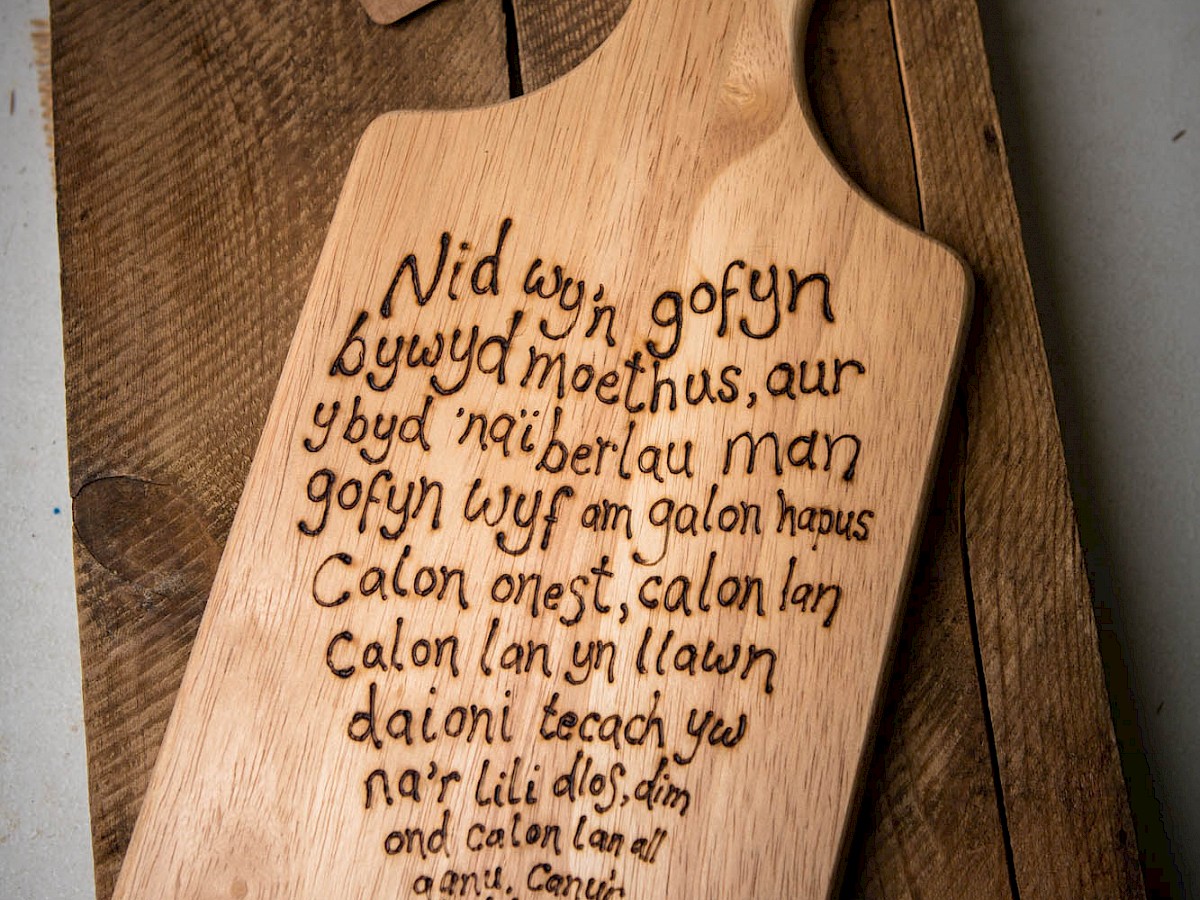 Nid wy'n gofyn
bywyd moethus, aur
y byd 'naï berlau man
gofyn wyf am galon hapus
Calon onest, calon lan
Calon lan yn llawn
daioni tecach yw
na'r lili dlos, dim
ond calon lan all
aanu. Canu'r